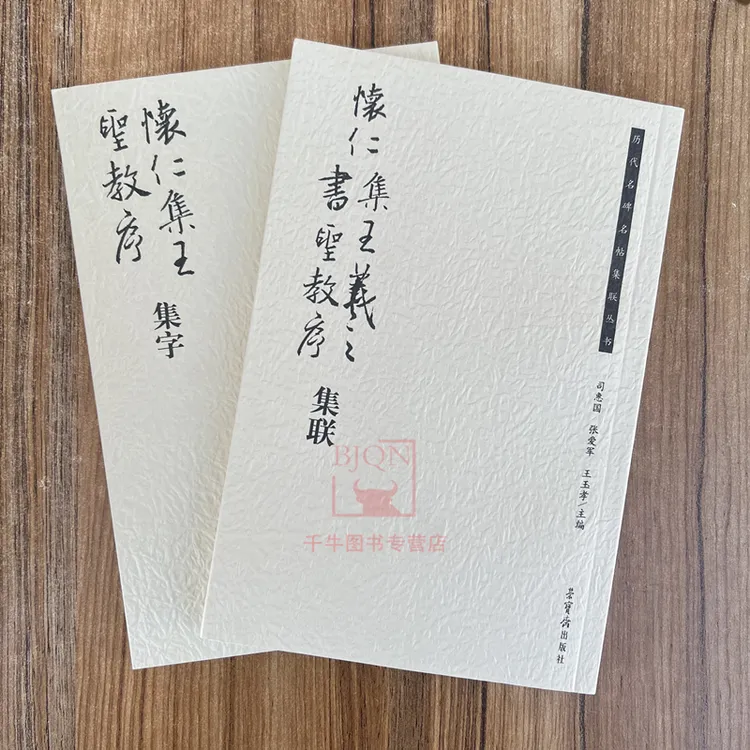 懷仁集王
聖教序
集字
懷仁集王羲之
書聖教序
集联
历代名碑名帖集联丛书
司惠国 张爱军 王玉孝/主编
荣寶齋出版社
BJQN
千牛图书专营店